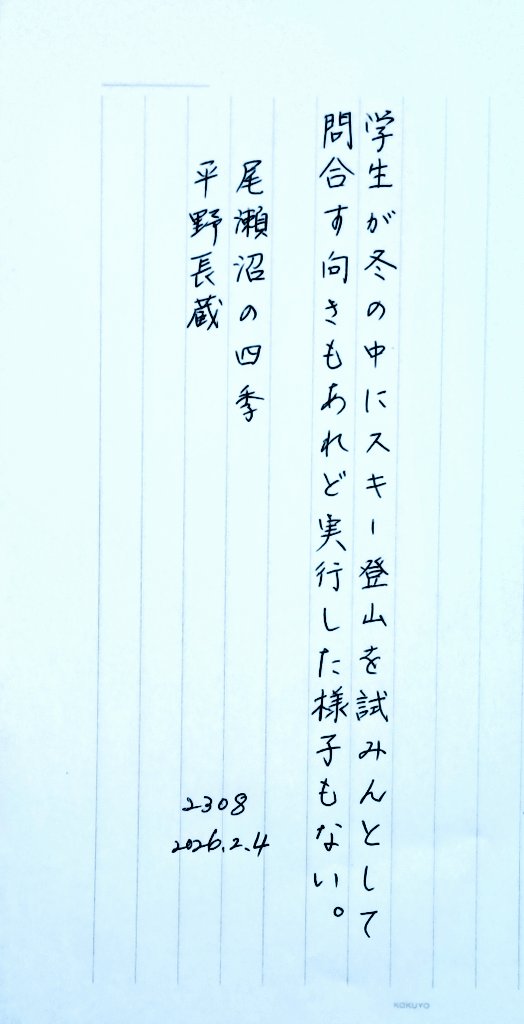 学生が冬の中にスキー登山を試みんとして
問合す向きもあれど実行した様子もない。
尾瀬沼の四季
平野長蔵
2308
2026.2.4
KOKUYO